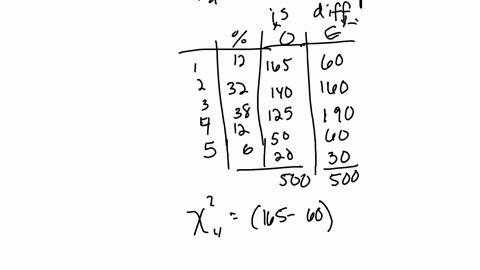 is diff
% O E
1 12 165 60
2 32 140 160
3 38 125 190
4 12 50 60
5 6 20 30
500 500
χ²₄ = (165 - 60)